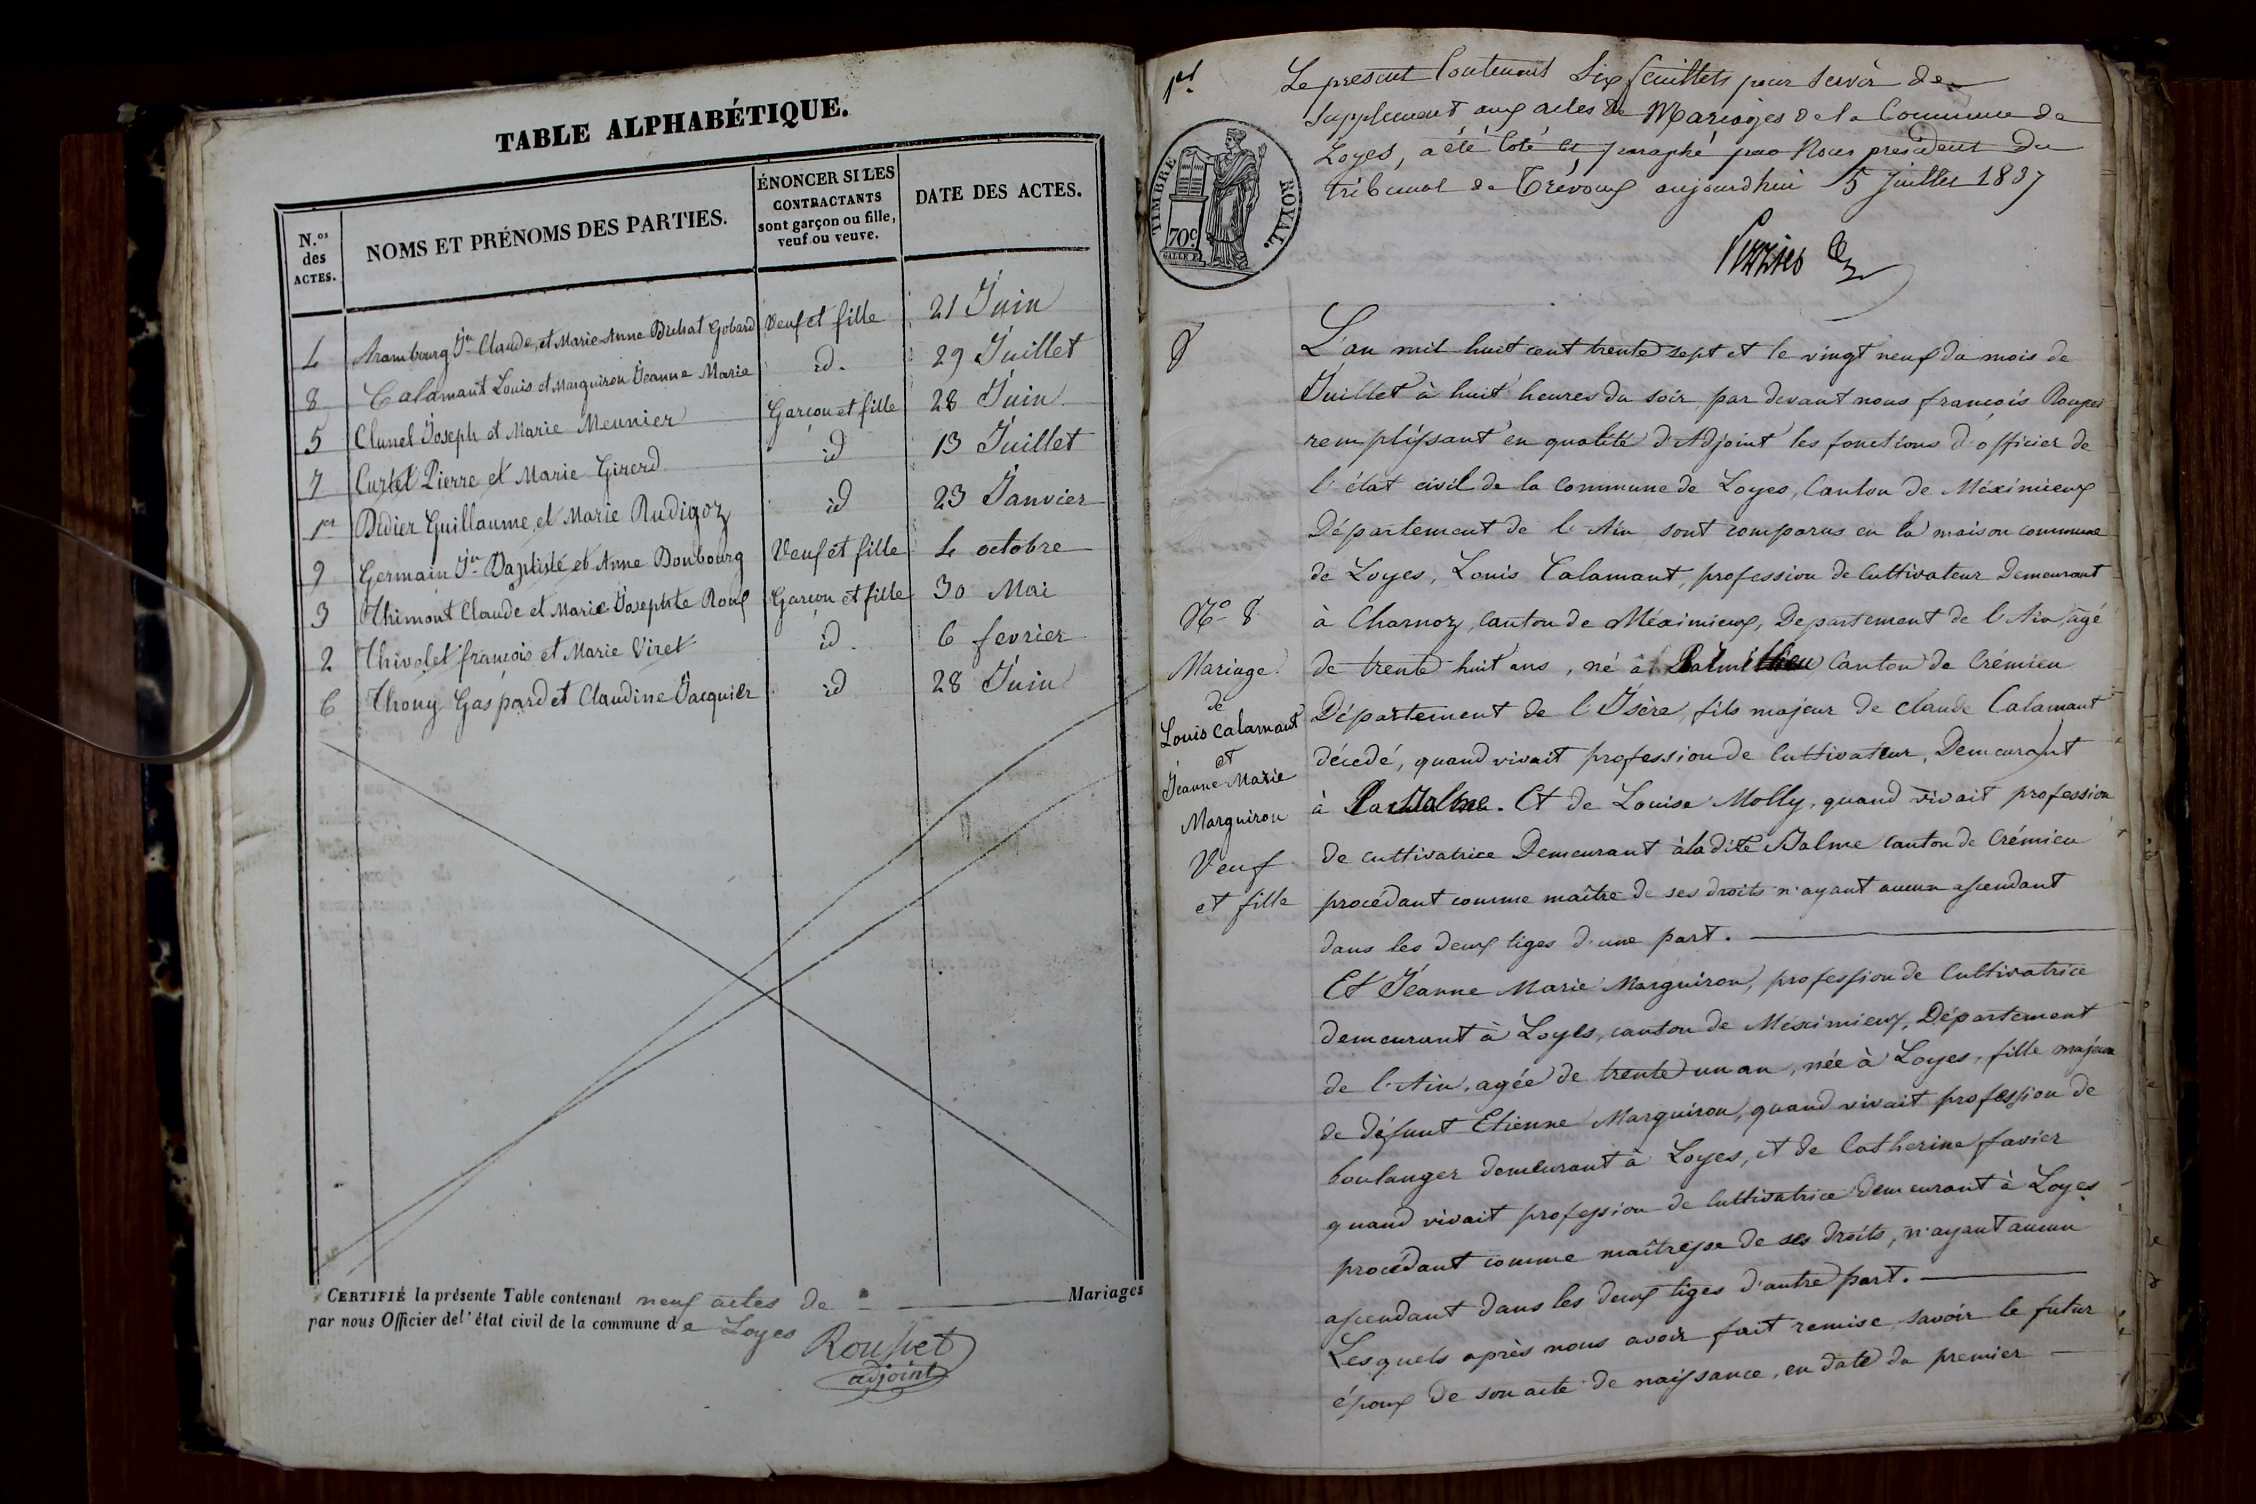 TABLE ALPHABÉTIQUE.
N.os des ACTES.
NOMS ET PRÉNOMS DES PARTIES.
ÉNONCER SI LES CONTRACTANTS sont garçon ou fille, veuf ou veuve.
DATE DES ACTES.
4 Arambourg Jn Claude, et Marie Anne Buchat Gobard Veuf et fille 21 Juin
8 Calamant Louis et Marguiron Jeanne Marie id. 29 Juillet
5 Clunel Joseph et Marie Meunier Garçon et fille 28 Juin
7 Curtet Pierre et Marie Girerd id 13 Juillet
1er Didier Guillaume, et Marie Rudigoz id 23 Janvier
9 Germain Jn Baptiste et Anne Bonbourg Veuf et fille 4 octobre
3 Thimont Claude et Marie Josephte Roux Garçon et fille 30 Mai
2 Thivolet françois et Marie Viret id. 6 fevrier
6 Thony Gaspard et Claudine Jacquier id 28 Juin
CERTIFIÉ la présente Table contenant neuf actes de Mariages
par nous Officier de l'état civil de la commune de Loyes
Rousset
adjoint
1er
Le present Contenant Six feuillets pour servir de
supplement aux actes de Mariages de la Commune de
Loyes, a été Coté et paraphé par Nous president du
tribunal de Trévoux aujourdhui 5 Juillet 1837
TIMBRE ROYAL.
70c
8
L'an mil huit cent trente sept et le vingt neuf du mois de
Juillet à huit heures du soir, par devant nous françois Rousset
remplissant en qualité d'Adjoint les fonctions d'officier de
l'état civil de la Commune de Loyes, Canton de Méximieux
Département de l'Ain sont comparus en la maison commune
de Loyes, Louis Calamant, profession de Cultivateur Demeurant
à Charnoz, Canton de Méximieux, Departement de l'Ain, agé
de trente huit ans, né à Canton de Crémieu
Département de l'Isère, fils majeur de Claude Calamant
décedé, quand vivait profession de Cultivateur, Demeurant
à La Balme. Et de Louise Molly, quand vivait profession
de cultivatrice Demeurant à la dite Balme canton de Crémieu
procédant comme maître de ses droits n'ayant aucun ascendant
dans les deux tiges d'une part.
Et Jeanne Marie Marguiron, profession de Cultivatrice
demeurant à Loyes, canton de Méximieux, Département
de l'Ain, agée de trente un an, née à Loyes, fille majeure
de défunt Etienne Marguiron, quand vivait profession de
boulanger demeurant à Loyes, et de Catherine favier
quand vivait profession de Cultivatrice Demeurant à Loyes
procédant comme maîtresse de ses droits, n'ayant aucun
ascendant dans les deux tiges d'autre part.
Lesquels après nous avoir fait remise, savoir le futur
époux de son acte de naissance, en date du premier
No 8
Mariage
de
Louis Calamant
et
Jeanne Marie
Marguiron
Veuf
et fille